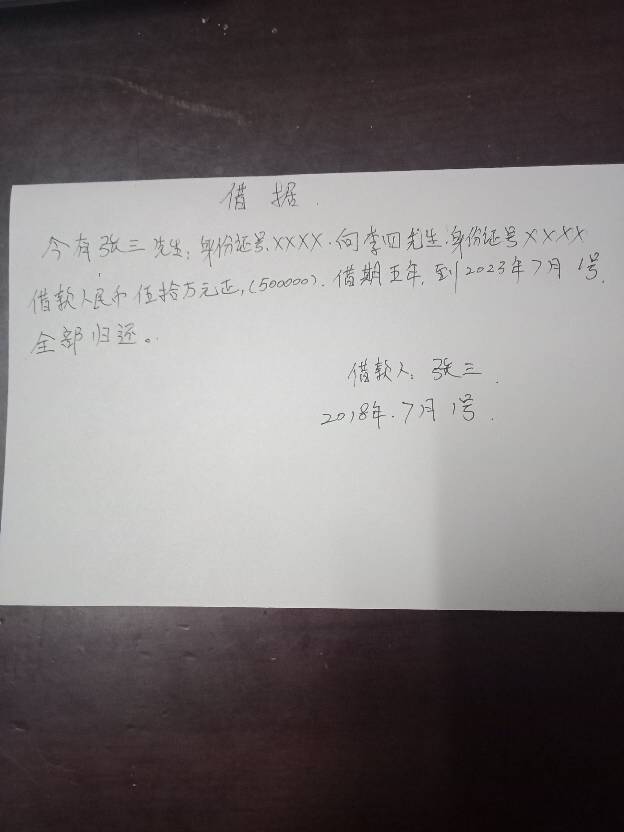 借据.
今有张三先生,身份证号.XXXX.向李四先生.身份证号XXXX
借款人民币伍拾万元正,(500000).借期五年,到2023年7月1号.
全部归还。
借款人:张三.
2018年.7月1号.